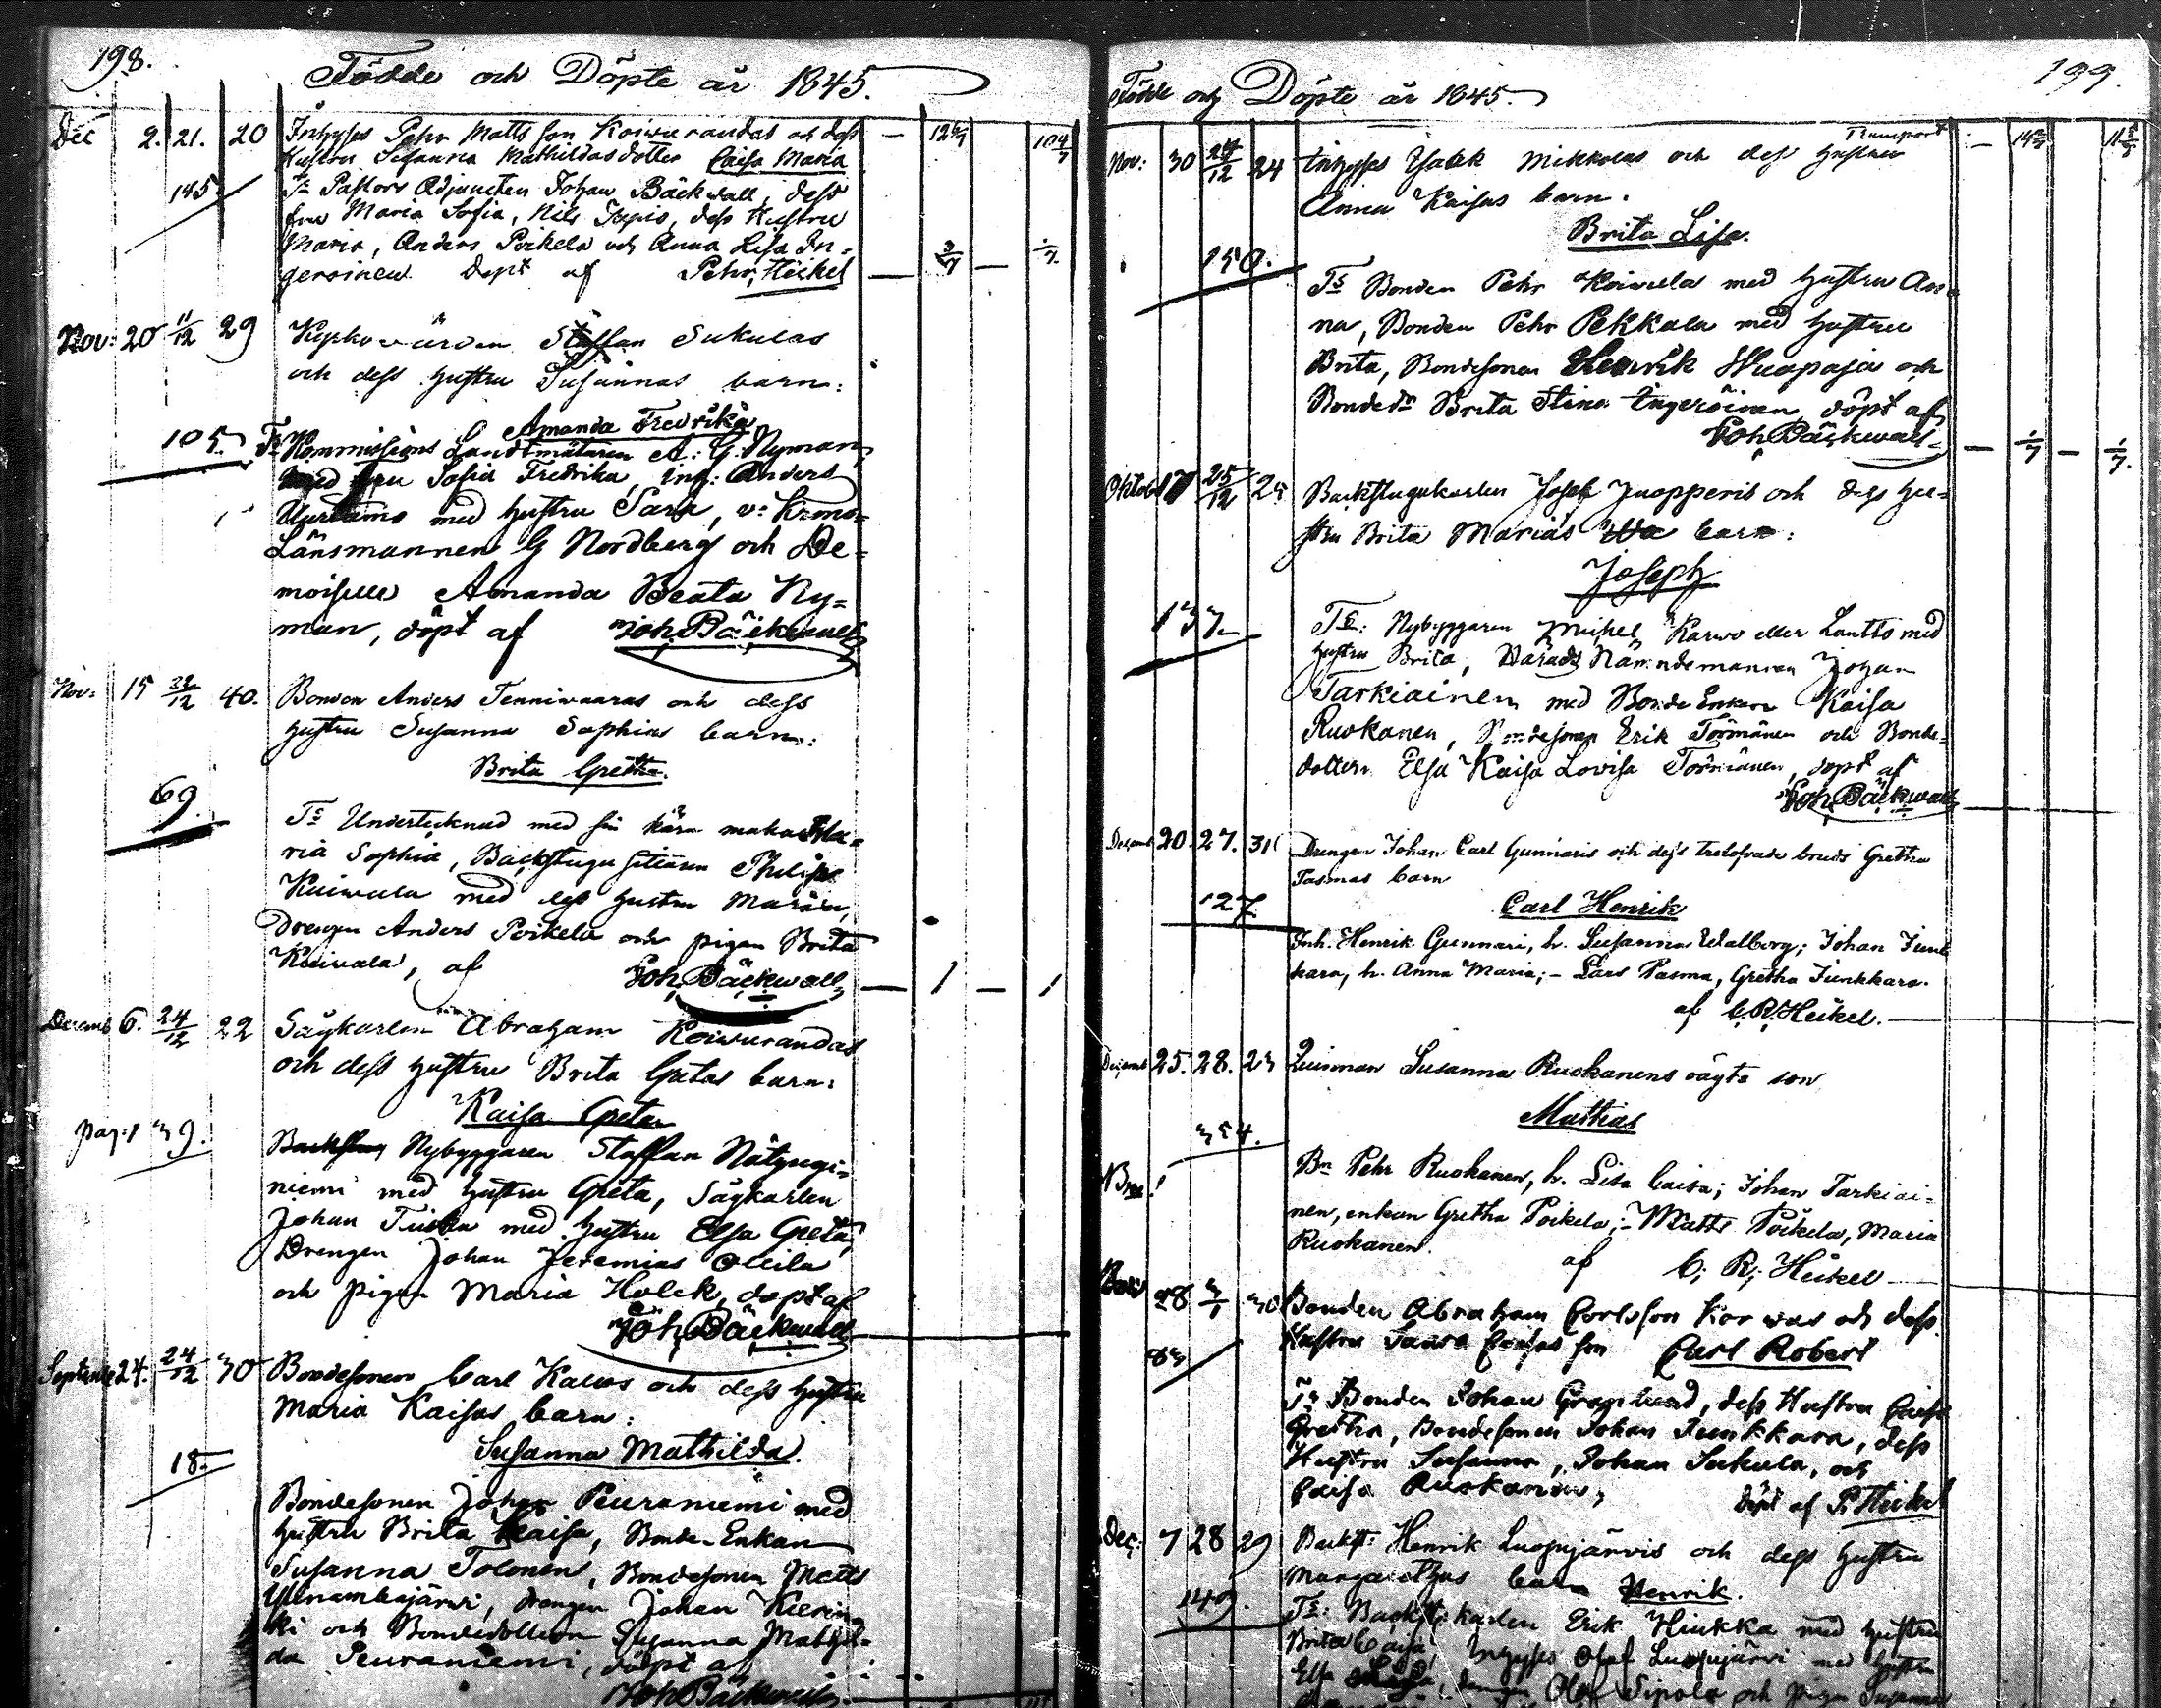 198.
Födde och Döpte år 1845.
Dec 2. 21. 20 Inhyses Pehr Matts son Koiwurandas och dess
Hustru Susanna Mathildas dotter Caisa Maria
145 Tn Pastors Adjuncten Johan Bäckwall, dess
fru Maria Sofia, Nils dess Hustru
Maria, Anders Poikela och Anna Lisa In=
geroinen Döpt af Pehr Heikel
Nov: 20 11/12 29 Kyrkowärden Staffan Sukulas
och dess hustru Susannas barn:
Amanda Fredrika
105. Ts Kommissions Landtmätaren A: G. Nyman,
med fru Sofia Fredrika, inh: Anders
med hustru Sara, v: Krono=
Länsmannen G Nordberg och De=
moiselle Amanda Beata Ny=
man, döpt af Joh. Bäckwall
Nov: 15 /12 40. Bonden Anders Tenniwaaras och dess
hustru Susanna Sophias barn:
Brita Gretha.
69. Ts Undertecknad med sin kära maka Ma=
ria Sophia, Backstugu sittaren Philip
Koiwala med dess hustru Maria,
Drengen Anders Poikela och pigan Brita
Koiwala, af Joh. Bäckwall — 1 — 1
Decemb 6. 24/12 22 Sågkarlen Abraham Koiwurandas
och dess hustru Brita Gretas barn:
Kaisa Greta
pag: 139. Nybyggaren Staffan
niemi med hustru Greta, Sågkarlen
Johan med hustru Elsa Greta,
Drengen Johan Jeremias Ollila
och pigan Maria Holck, döpt af
Joh. Bäckwall
Septemb 24. 24/12 30 Bondesonen Carl Kallos och dess hustru
Maria Kaisas barn:
Susanna Mathilda.
18. Bondesonen Johan Peuraniemi med
hustru Brita Kaisa, Bonde Enkan
Susanna Tolonen, Bondesonen Matts
Ylinambajärwi, drengen Johan Kierin=
ki och Bondedottern Susanna Mathil=
da Peuraniemi, döpt af
Joh Bäckwall
199.
Födde och Döpte år 1845.
Transport
Nov: 30 24/12 24 Inhyses Isack Mikkolas och dess hustru
Anna Kaisas barn.
Brita Lisa.
150. Ts Bonden Pehr Koiwula med hustru An=
na, Bonden Pehr Pekkala med hustru
Brita, Bondesonen Henrik Huopaja och
Bondedr Brita Stina Ingeröinen, döpt af
Joh. Bäckwall — 1/7 — 1/7.
Oktob 17 25/12 Backstugukarlen Josef Juopperis och dess hu=
stru Brita Marias barn:
Joseph
137. Ts: Nybyggaren Mickel Karwo eller Lantto med
hustru Brita, Härads Nämndemannen Johan
Tarkiainen med Bonde Enkan Kaisa
Ruokanen, Bondesonen Erik Törmänen och Bonde=
dottern Elsa Kaisa Lovisa Törmänen, döpt af
Joh. Bäckwall
Decemb 20. 27. 31 Drengen Johan Carl Gunnaris och dess trolofvade brud Gretha
Pasmas barn
Carl Henrik
127. Inh. Henrik Gunnari, h. Susanna Walborg; Johan Junk
kara, h. Anna Maria; – Lars Pasma, Gretha Junkkara.
af C. R. Heikel.
Decemb 25. 28. 23 Qvinnan Susanna Ruokanens oägta son
Mathias
Bn Pehr Ruokanen, h. Lisa Caisa; Johan Tarkiai=
nen, enkan Gretha Poikela; – Matts Poikela, Maria
Ruokanen. af C. R. Heikel
28 3/1 30 Bonden Abraham Carlsson Korwas och dess
Hustru Caisas son Carl Robert
83 Tn Bonden Johan Granlund, dess Hustru Caisa
Gretha, Bondesonen Johan Junkkara, dess
Hustru Susanna, Johan Sukula, och
Caisa Ruokanen, döpt af P. Heikel
Dec: 7 28 29 Backst: Henrik Luosujärvis och dess hustru
Margarethas barn Henrik.
149. Ts: Backst: karlen Erik Hiukka med hustru
Brita Caisa, Inhyses Olof Luosujärvi med hustru
Elsa drengen Olof Sipola och pigan Susanna